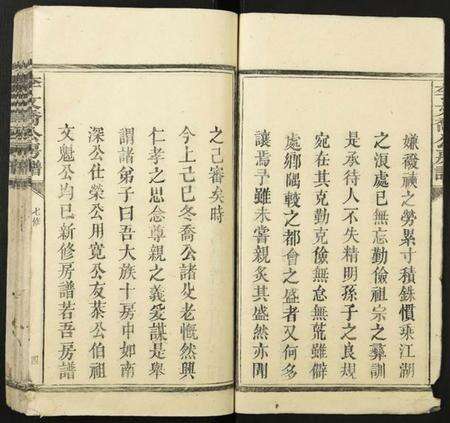 嫌襏襫之勞累寸積銖慣乘江湖
之浪處已無忘勤儉祖宗之彝訓
是承待人不失精明孫子之良規
宛在其克勤克儉無怠無荒雖僻
處鄉隅較之都會之盛者又何多
讓焉予雖未嘗親炙其盛然亦聞
之己審矣時
今上己巳冬喬公諸父老慨然興
仁孝之思念尊親之義爰謀是舉
謂諸弟子曰吾大族十房中如南
深公仕榮公用寬公友恭公伯祖
文魁公均已新修房譜若吾房譜
李文喬公房譜
七修
四